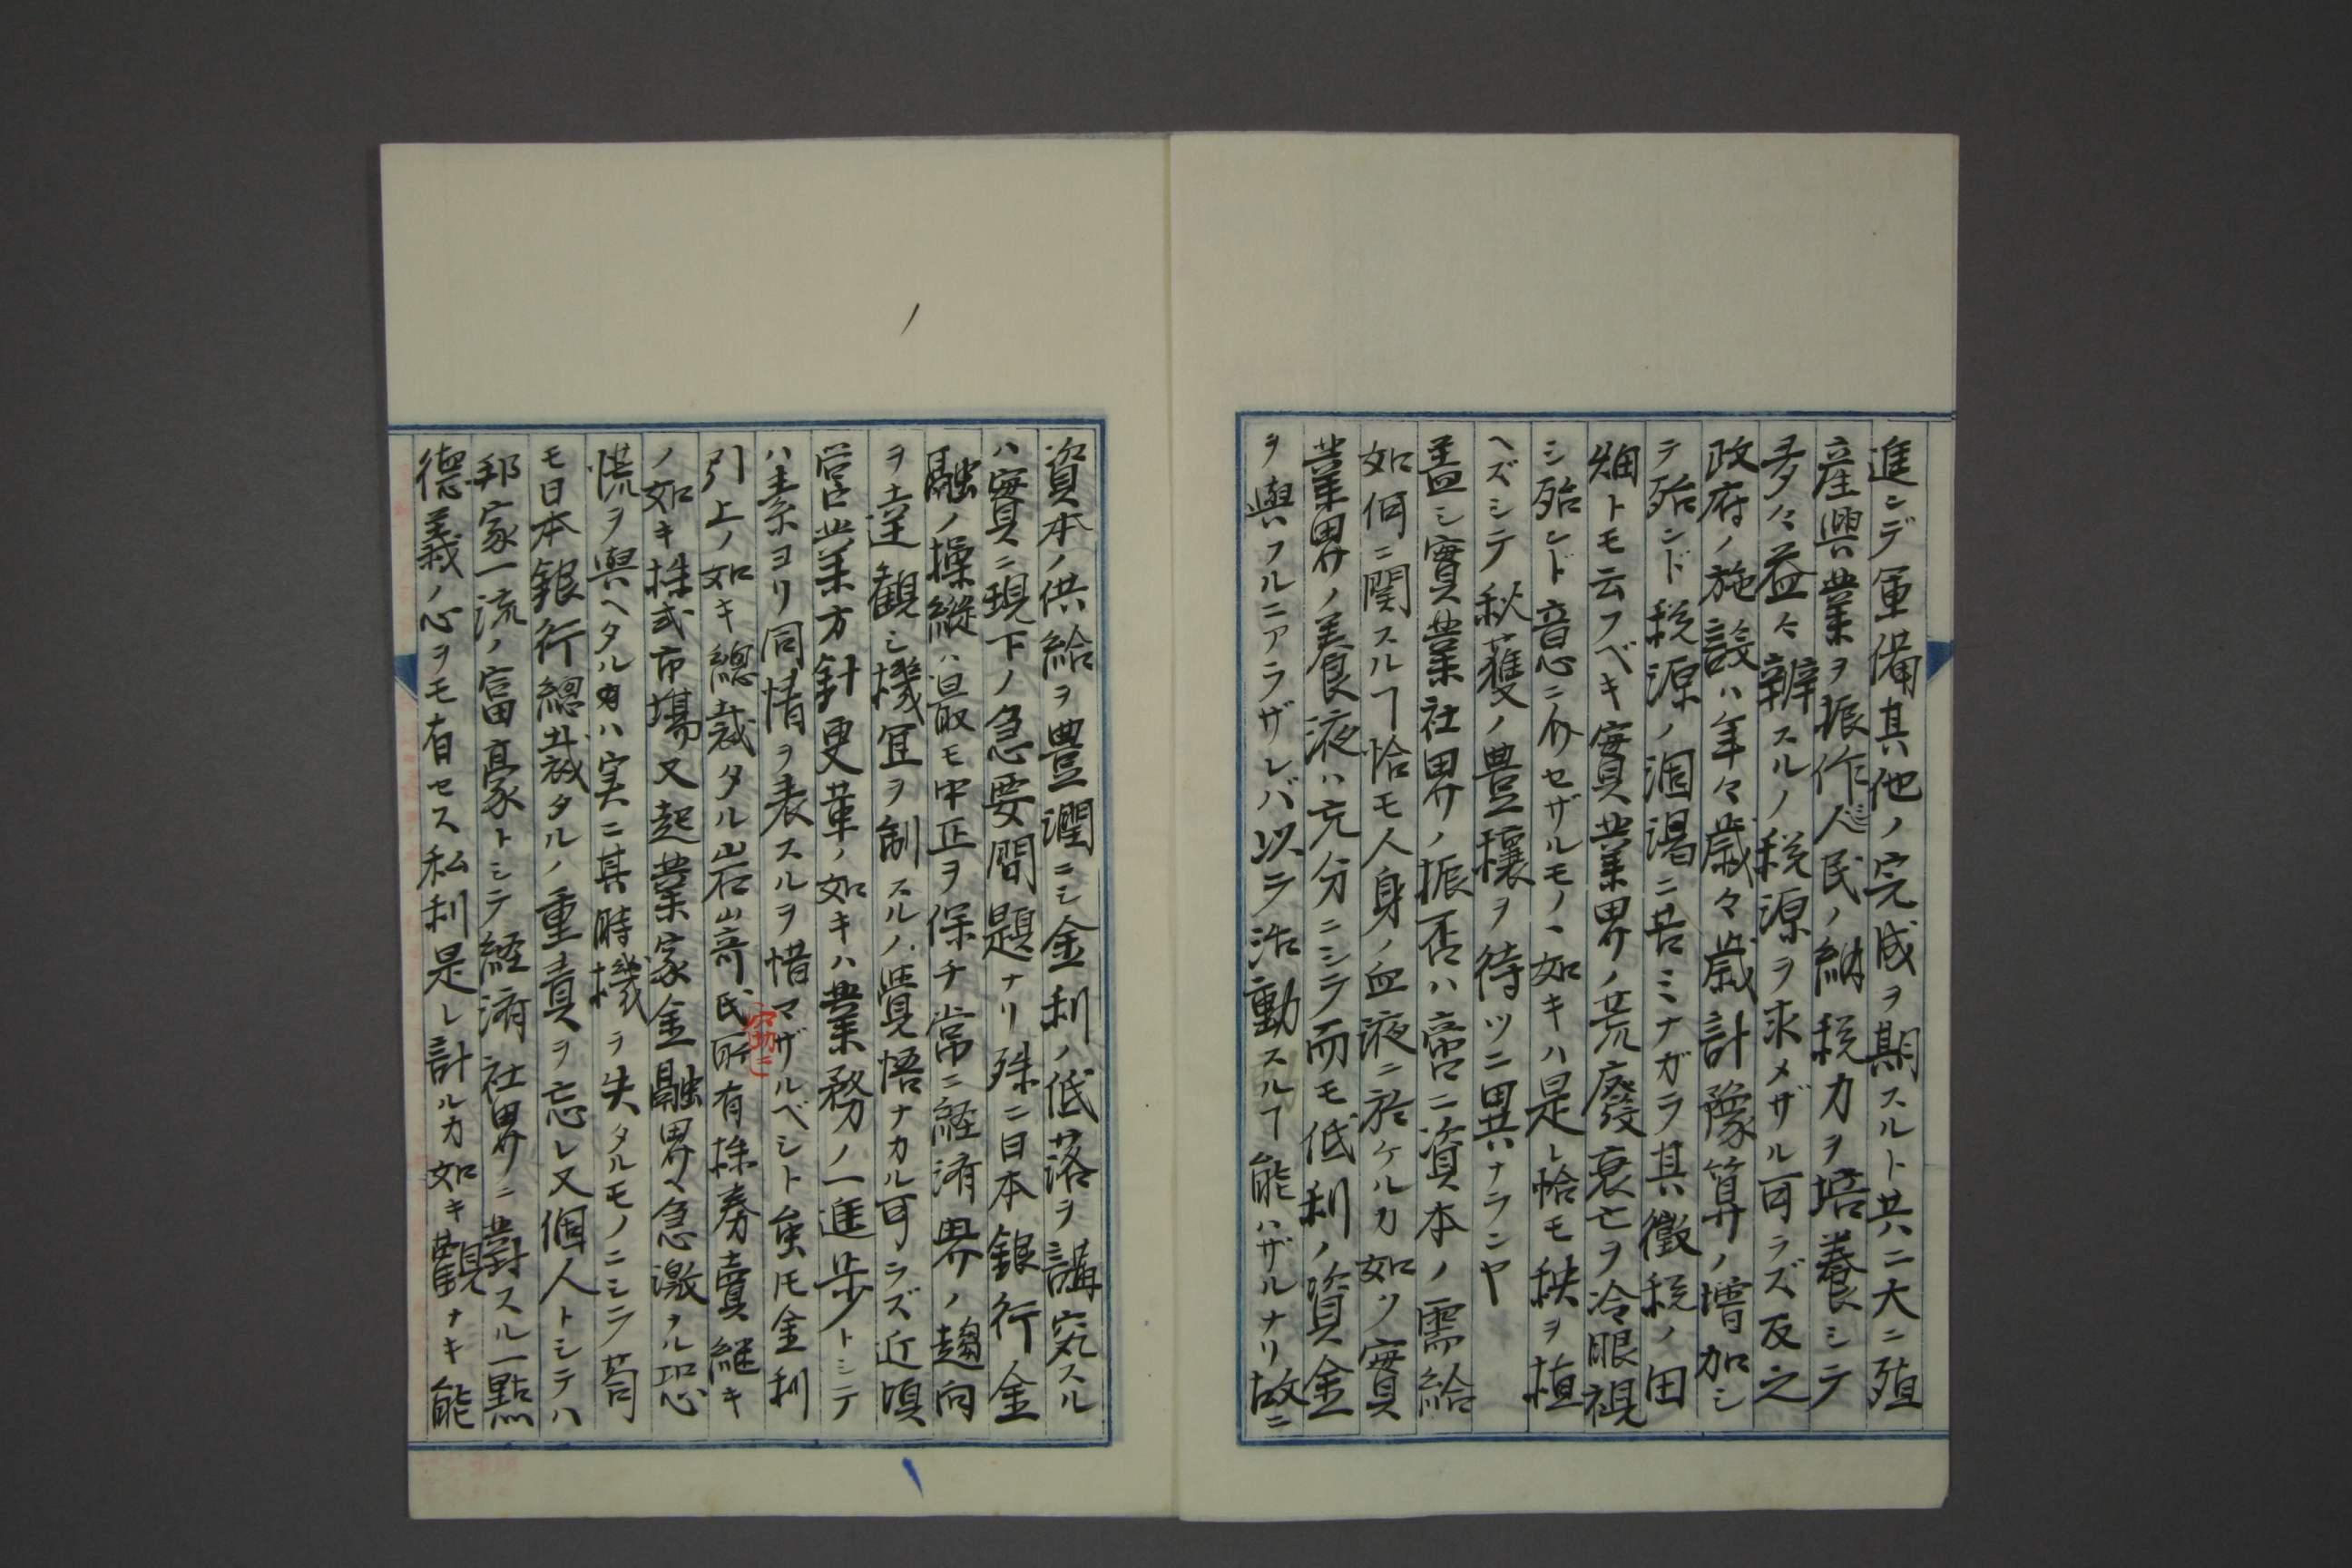 進ンデ軍備其他ノ完成ヲ期スルト共ニ大ニ殖
産興業ヲ振作シ人民ノ納税力ヲ培養シテ
多々益々辨スルノ税源ヲ求メザル可ラズ反之
政府ノ施設ハ年々歳々歳計豫算ノ増加シ
テ殆ンド税源ノ涸渇ニ苦ミナガラ其徴税ノ田
畑トモ云フベキ實業界ノ荒廢衰亡ヲ冷眼視
シ殆ンド意ニ介セザルモノヽ如キハ是レ恰モ秧ヲ植
ヘズシテ秋獲ノ豊穰ヲ待ツニ異ナランヤ
蓋シ實業社界ノ振否ハ啻ニ資本ノ需給
如何ニ関スルヿ恰モ人身ノ血液ニ於ケルカ如ク實
業界ノ養液ハ充分ニシテ而モ低利ノ資金
ヲ與フルニアラザレバ以テ活動スルヿ能ハザルナリ故ニ
資本ノ供給ヲ豊潤ニシ金利ノ低落ヲ講究スル
ハ實ニ現下ノ急要問題ナリ殊ニ日本銀行金
融ノ操縦ハ最モ中正ヲ保チ常ニ経済界ノ趨向
ヲ達観シ機宜ヲ制スルノ覺悟ナカル可ラズ近頃
営業方針更革ノ如キハ業務ノ一進歩トシテ
ハ素ヨリ同情ヲ表スルヲ惜マザルベシト雖モ金利
引上ノ如キ總裁タル岩崎氏所有株券賣継キ
ノ如キ株式市場又起業家金融界ヘ急激ナル恐
慌ヲ與ヘタルハ実ニ其時機ヲ失タルモノニシテ苟
モ日本銀行總裁タルノ重責ヲ忘レ又個人トシテハ
邦家一流ノ富豪トシテ経済社界ニ對スル一點
德義ノ心ヲモ有セス私利是レ計ルカ如キ觀ナキ能